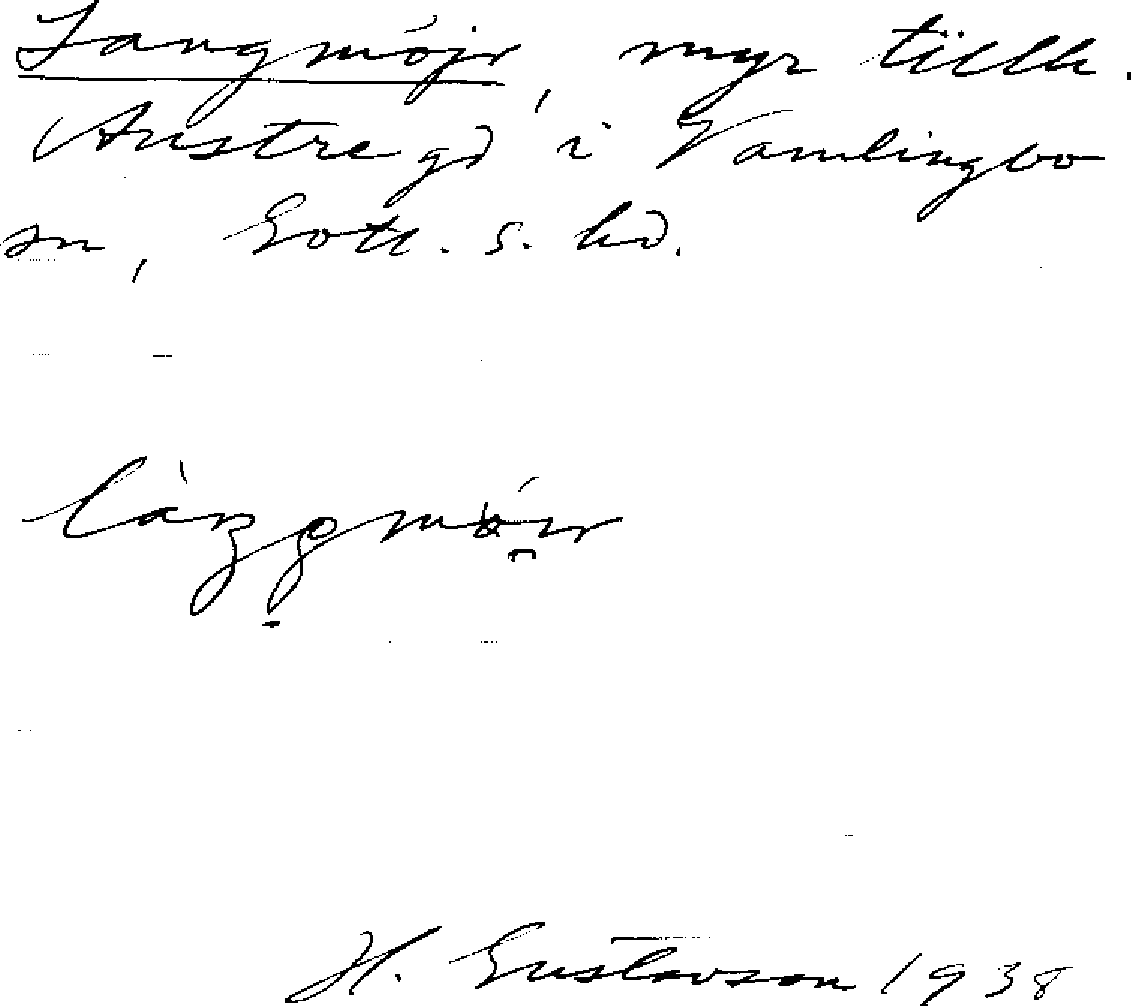 Langmöjr, myr tillh.
Austre gd i Vamlingbo
sn, Gotl. s. hd.
H. Gustavson 1938